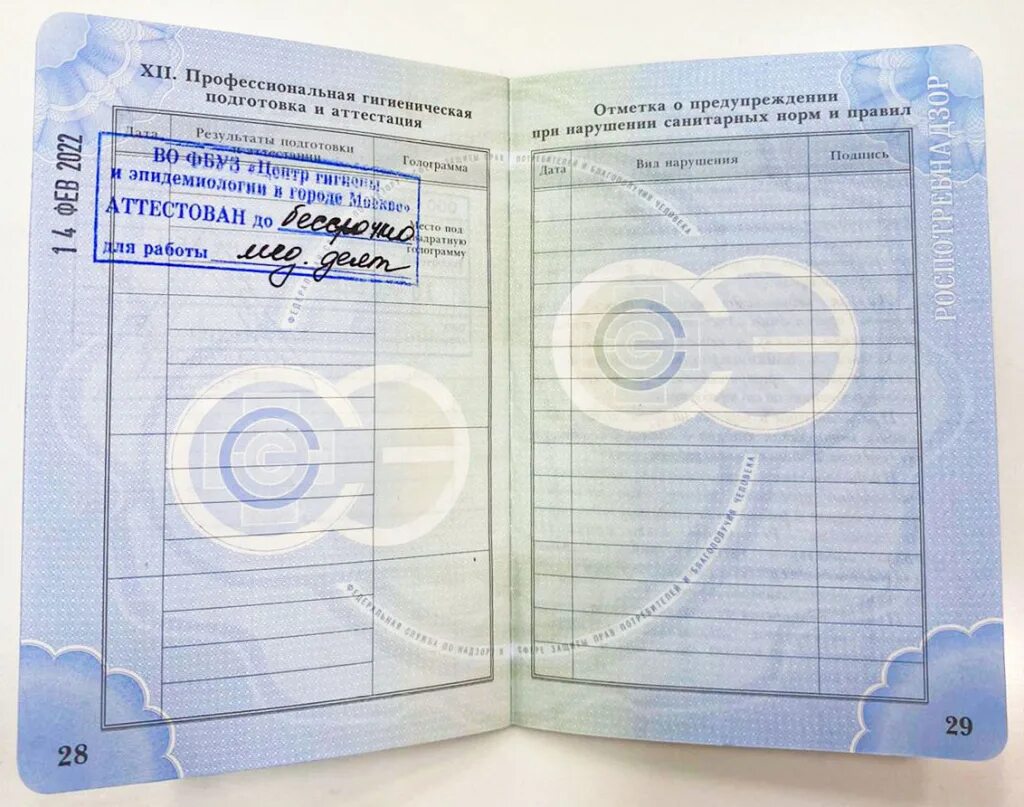 XII. Профессиональная гигиеническая
подготовка и аттестация
Дата
Результаты подготовки
и аттестации
Голограмма
14 ФЕВ 2022
ВО ФБУЗ «Центр гигиены
и эпидемиологии в городе Москве»
АТТЕСТОВАН до бессрочно
для работы мед. деят
Место под
квадратную
голограмму
ФЕДЕРАЛЬНАЯ СЛУЖБА ПО НАДЗОРУ В СФЕРЕ ЗАЩИТЫ ПРАВ ПОТРЕБИТЕЛЕЙ И БЛАГОПОЛУЧИЯ ЧЕЛОВЕКА
28
Отметка о предупреждении
при нарушении санитарных норм и правил
Дата
Вид нарушения
Подпись
ЗАЩИТЫ ПРАВ ПОТРЕБИТЕЛЕЙ И БЛАГОПОЛУЧИЯ ЧЕЛОВЕКА
РОСПОТРЕБНАДЗОР
29